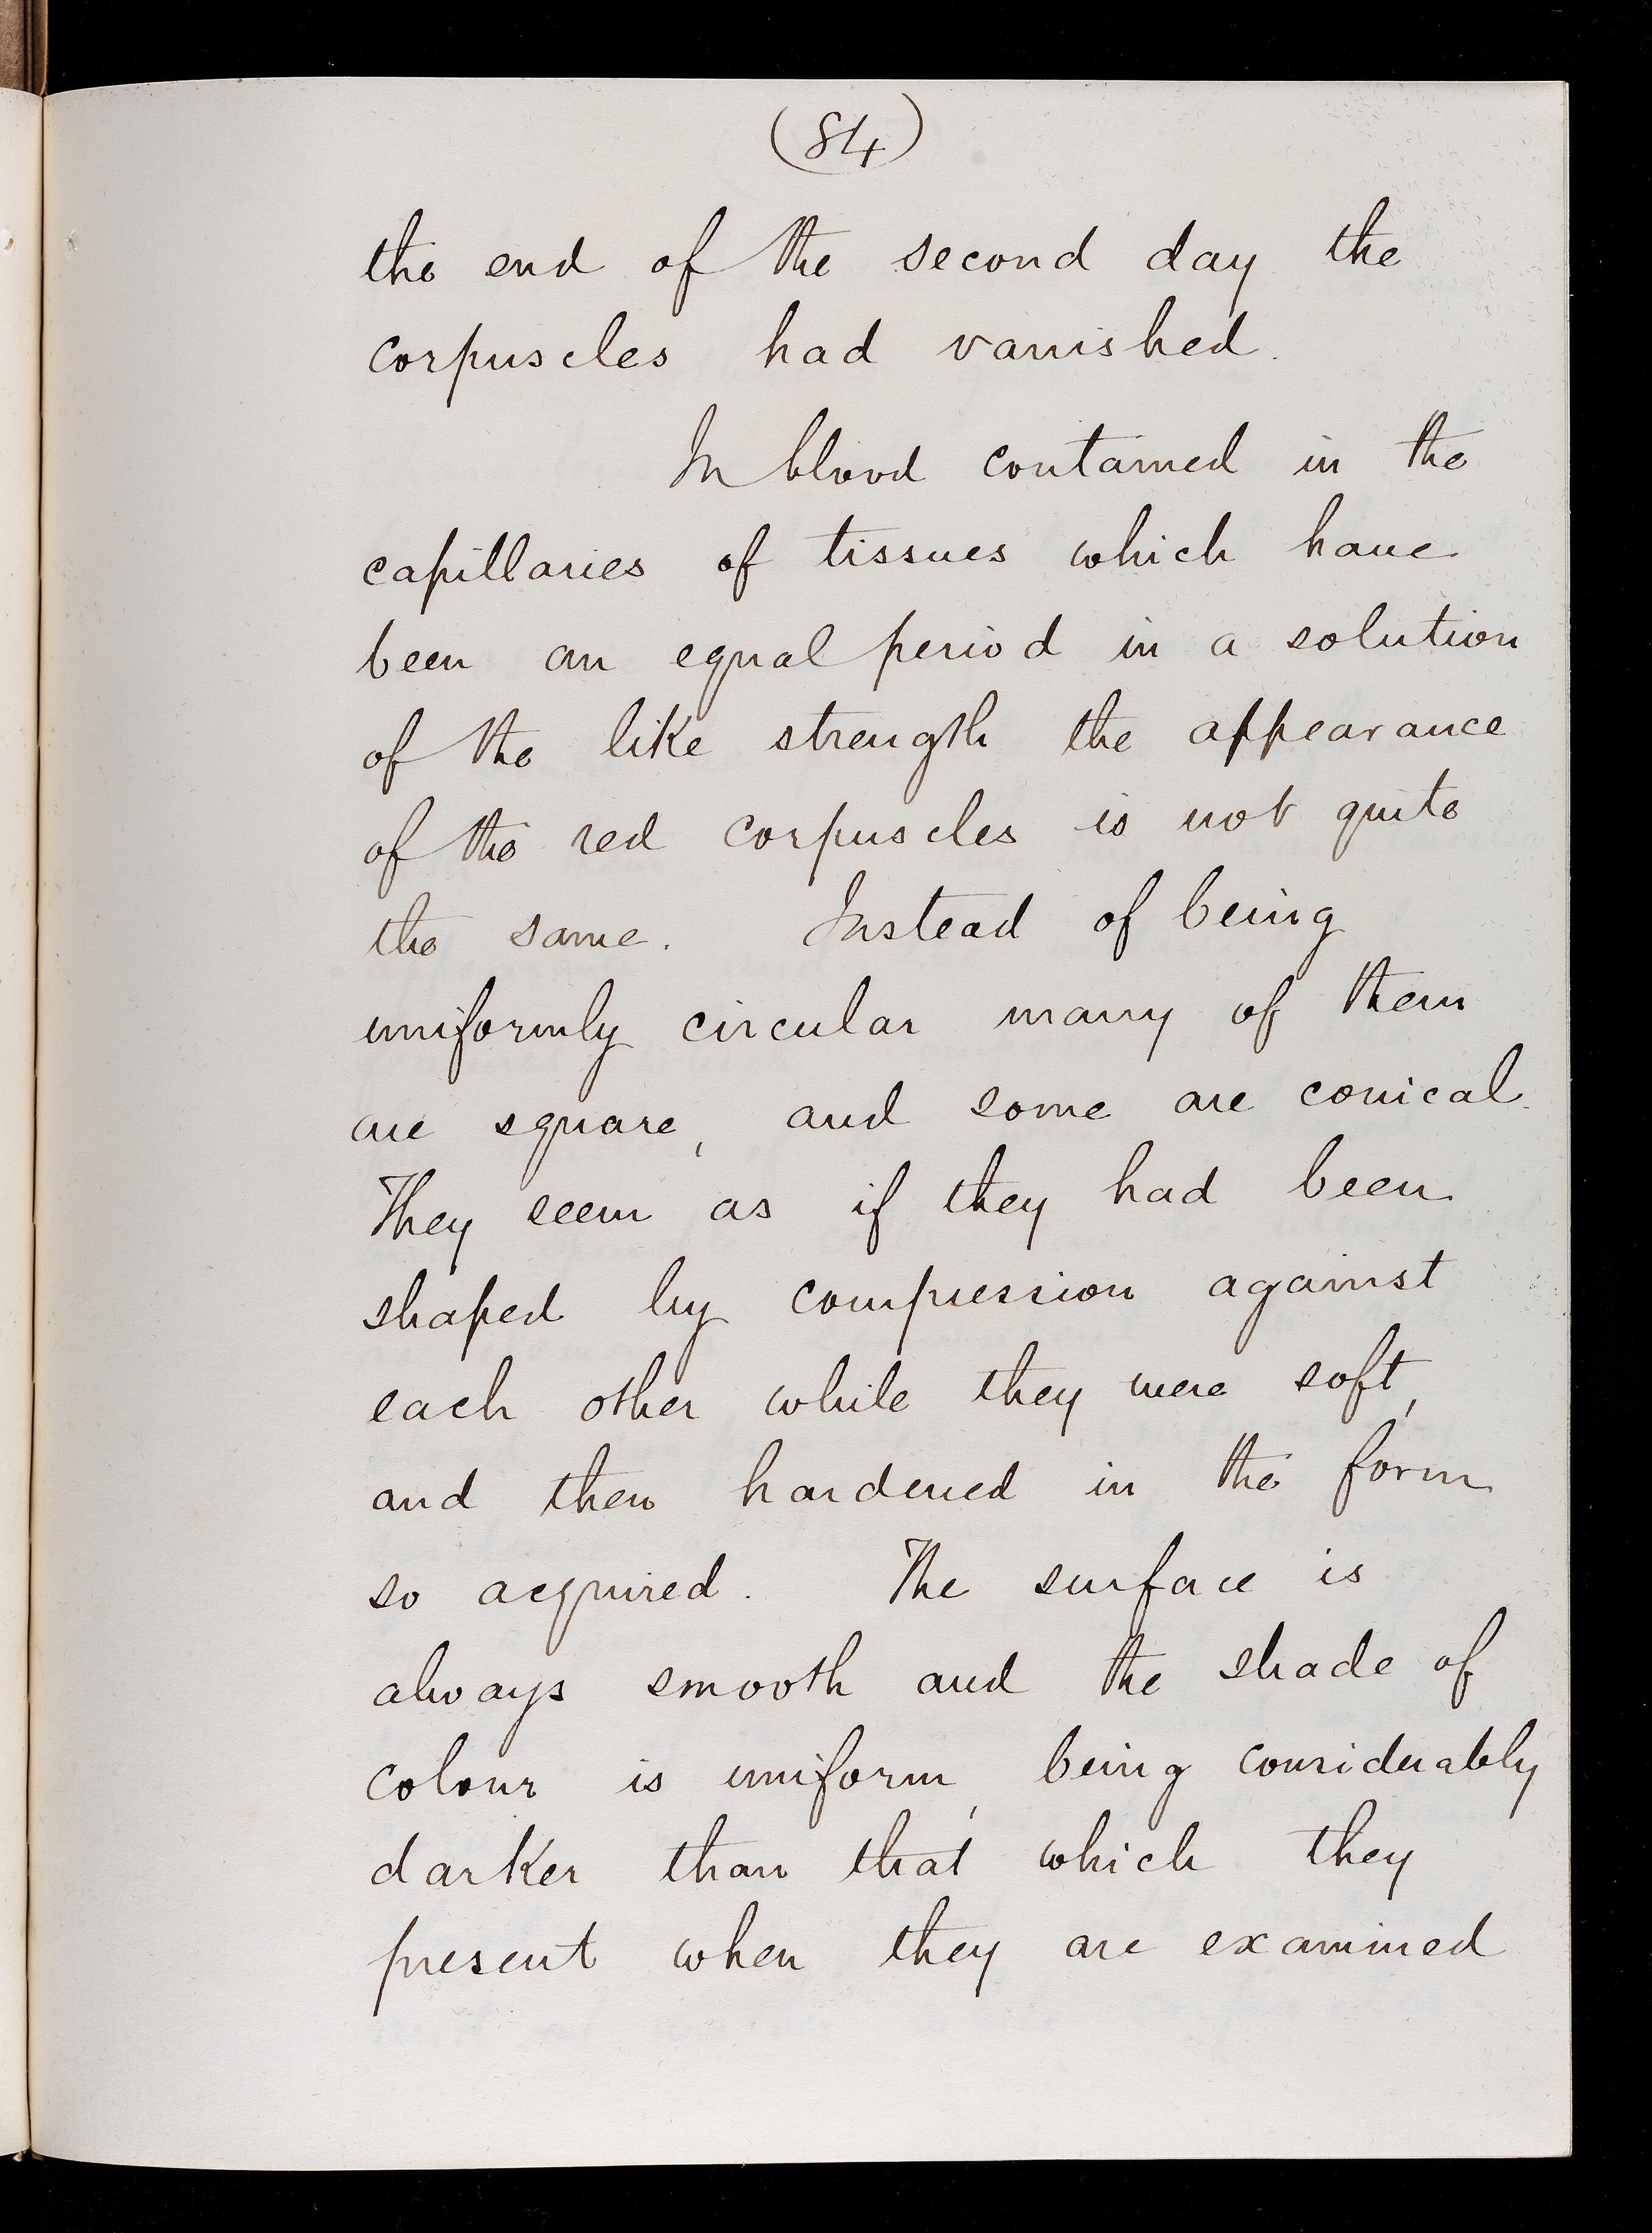 (84)
the end of the second day the
corpuscles had vanished.
In blood contained in the
capillaries of tissues which have
been an equal period in a solution
of the like strength the appearance
of the red corpuscles is not quite
the same. Instead of being
uniformly circular many of them
are square, and some are conical.
They seem as if they had been
shaped by compression against
each other while they were soft,
and then hardened in the form
so acquired. The surface is
always smooth and the shade of
colour is uniform, being considerably
darker than that which they
present when they are examined